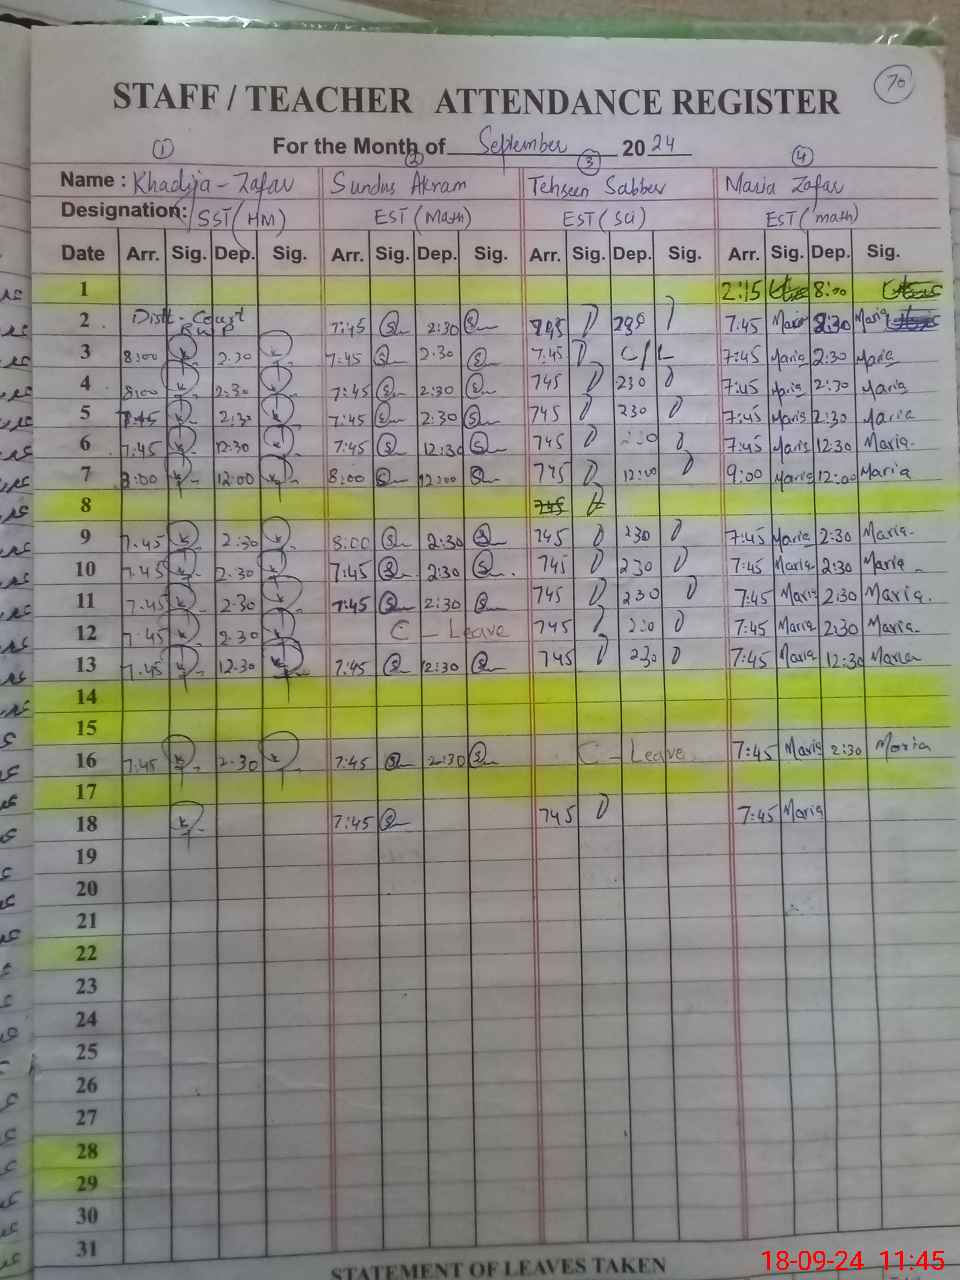 70
STAFF / TEACHER ATTENDANCE REGISTER
For the Month of September 2024
1 2 3 4
Name : Khadija-Zafar Sundus Akram Tehseen Sabber Maria Zafar
Designation: SST(HM) EST (Math) EST (Sci) EST (math)
Date Arr. Sig. Dep. Sig. Arr. Sig. Dep. Sig. Arr. Sig. Dep. Sig. Arr. Sig. Dep. Sig.
1 2:15 8:00
2 Distt-Court 7:45 2:30 230 7:45 Maria 2:30 Maria
3 8:00 2.30 7:45 2.30 7.45 C/L 7:45 Maria 2:30 Maria
4 8:00 2:30 7:45 2:30 745 230 7:45 Maria 2:30 Maria
5 7:45 2:30 7:45 2:30 745 230 7:45 Maria 2:30 Maria
6 7.45 12:30 7:45 12:30 745 7:45 Maria 12:30 Maria.
7 8:00 12:00 8:00 12:00 745 12:00 9:00 Maria 12:00 Maria
8 745
9 7.45 2.30 8:00 2:30 745 230 7:45 Maria 2:30 Maria.
10 7.45 2.30 7:45 2:30 745 230 7:45 Maria 2:30 Maria.
11 7.45 2.30 7:45 2:30 745 230 7:45 Maria 2:30 Maria.
12 7.45 2.30 C-Leave 745 230 7:45 Maria 2:30 Maria.
13 7.45 12.30 7:45 12:30 745 230 7:45 Maria 12:30 Maria
14
15
16 7:45 2.30 7:45 2:30 C-Leave. 7:45 Maria 2:30 Maria
17
18 7:45 745 7:45 Maria
19
20
21
22
23
24
25
26
27
28
29
30
31
STATEMENT OF LEAVES TAKEN
18-09-24 11:45